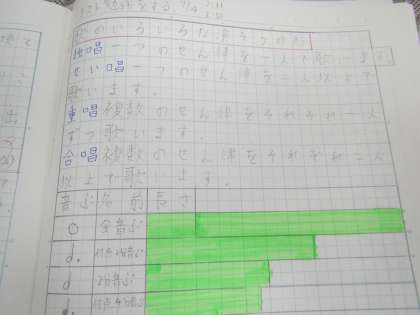 独唱一つのせん律を一人で歌います。
せい唱一つのせん律を二人以上で
歌います。
重唱複数のせん律をそれぞれ一人
ずつ歌います。
合唱複数のせん律をそれぞれ二人
以上で歌います。
音ぷ 名前 長さ
全音ぷ
付点2分音ぷ
2分音ぷ
付点4分音ぷ